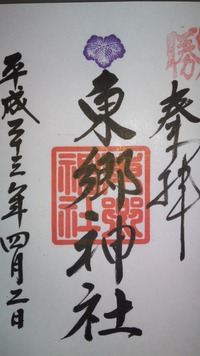 勝
奉拝
東郷神社
平成二十三年四月二日